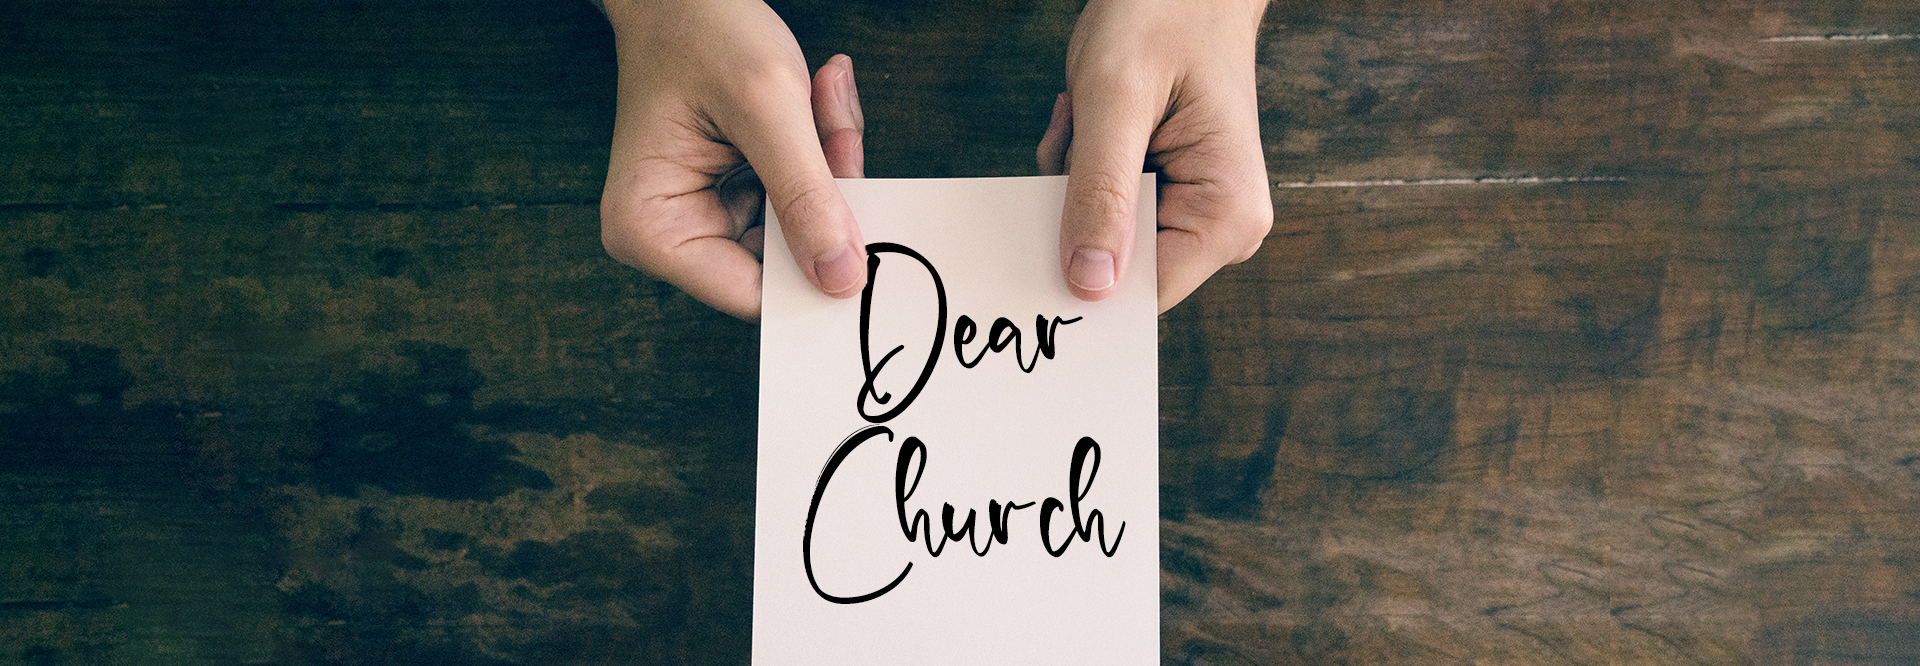 Dear
Church